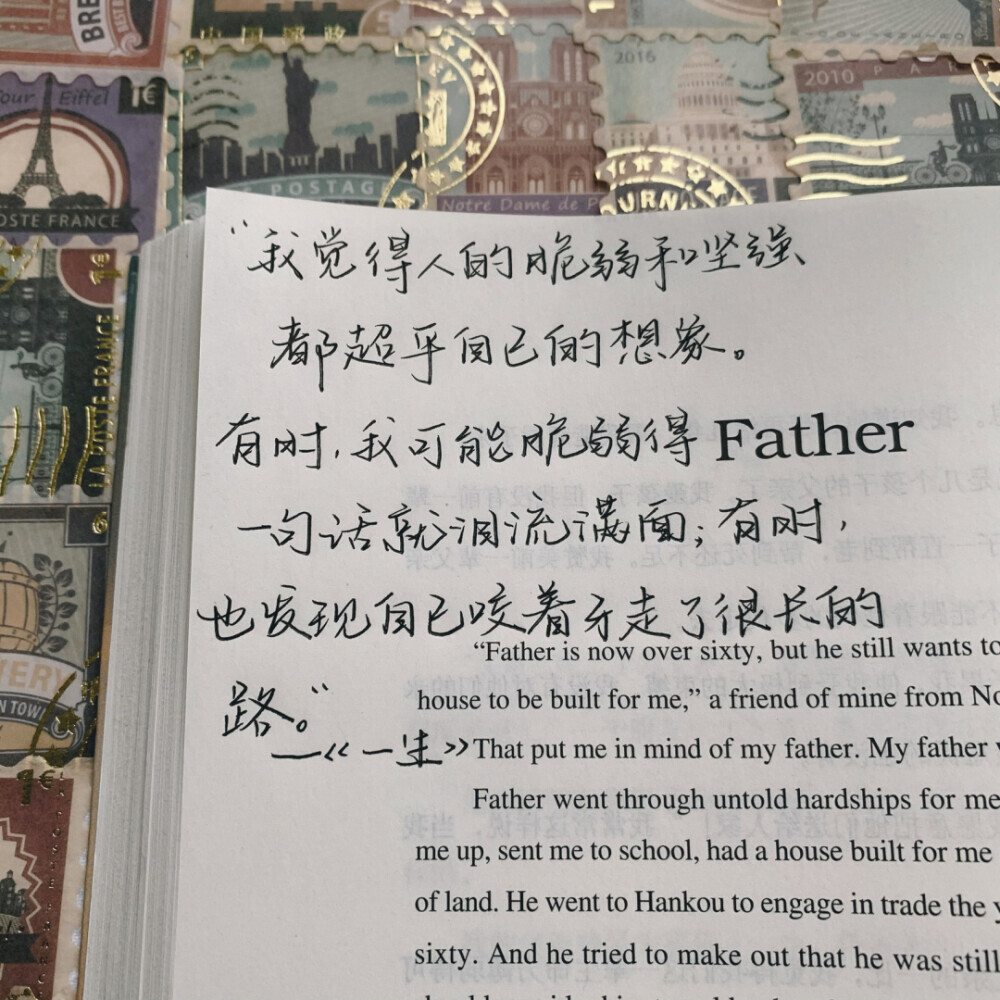 BRE
中国邮政
Tour Eiffel 1€
POSTE FRANCE
POSTAG
2016
2010 PA
Notre Dame de P
URN
LA POSTE FRANCE
“我觉得人的脆弱和坚强
都超乎自己的想象。
有时,我可能脆弱得 Father
一句话就泪流满面;有时,
也发现自己咬着牙走了很长的
路。”
—《一生》
“Father is now over sixty, but he still wants to
house to be built for me,” a friend of mine from No
That put me in mind of my father. My father
Father went through untold hardships for me
me up, sent me to school, had a house built for me
of land. He went to Hankou to engage in trade the y
sixty. And he tried to make out that he was still